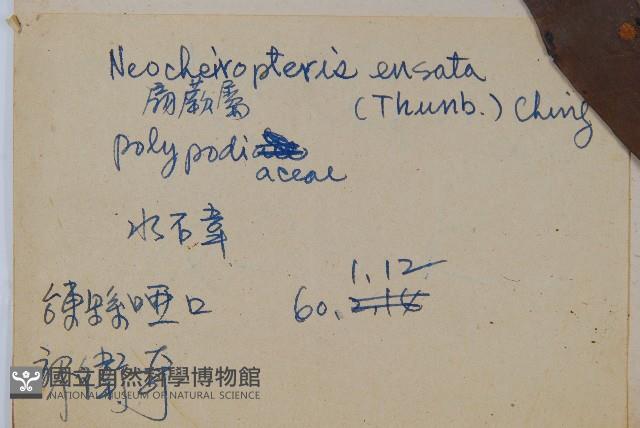 Neocheiropteris ensata
扇蕨屬 (Thunb.) Ching
polypodi
aceae
水石韋
1.12
埡口 60.
國立自然科學博物館
NATIONAL MUSEUM OF NATURAL SCIENCE